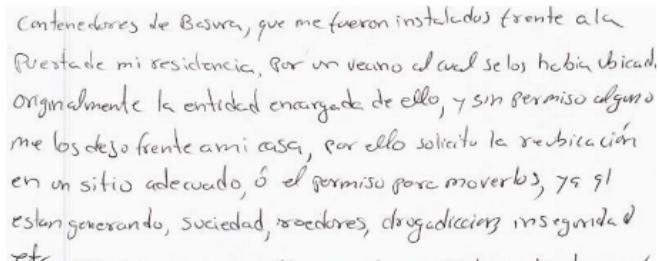 Contenedores de Basura, que me fueron instalados frente a la
Puerta de mi residencia, por un vecino al cual se los habia ubicad.
originalmente la entidad encargada de ello, y sin permiso alguno
me los dejo frente a mi casa, por ello solicito la reubicación
en un sitio adecuado, ó el permiso para moverlos, ya q!
estan generando, suciedad, roedores, drogadiccion inseguridad
etc